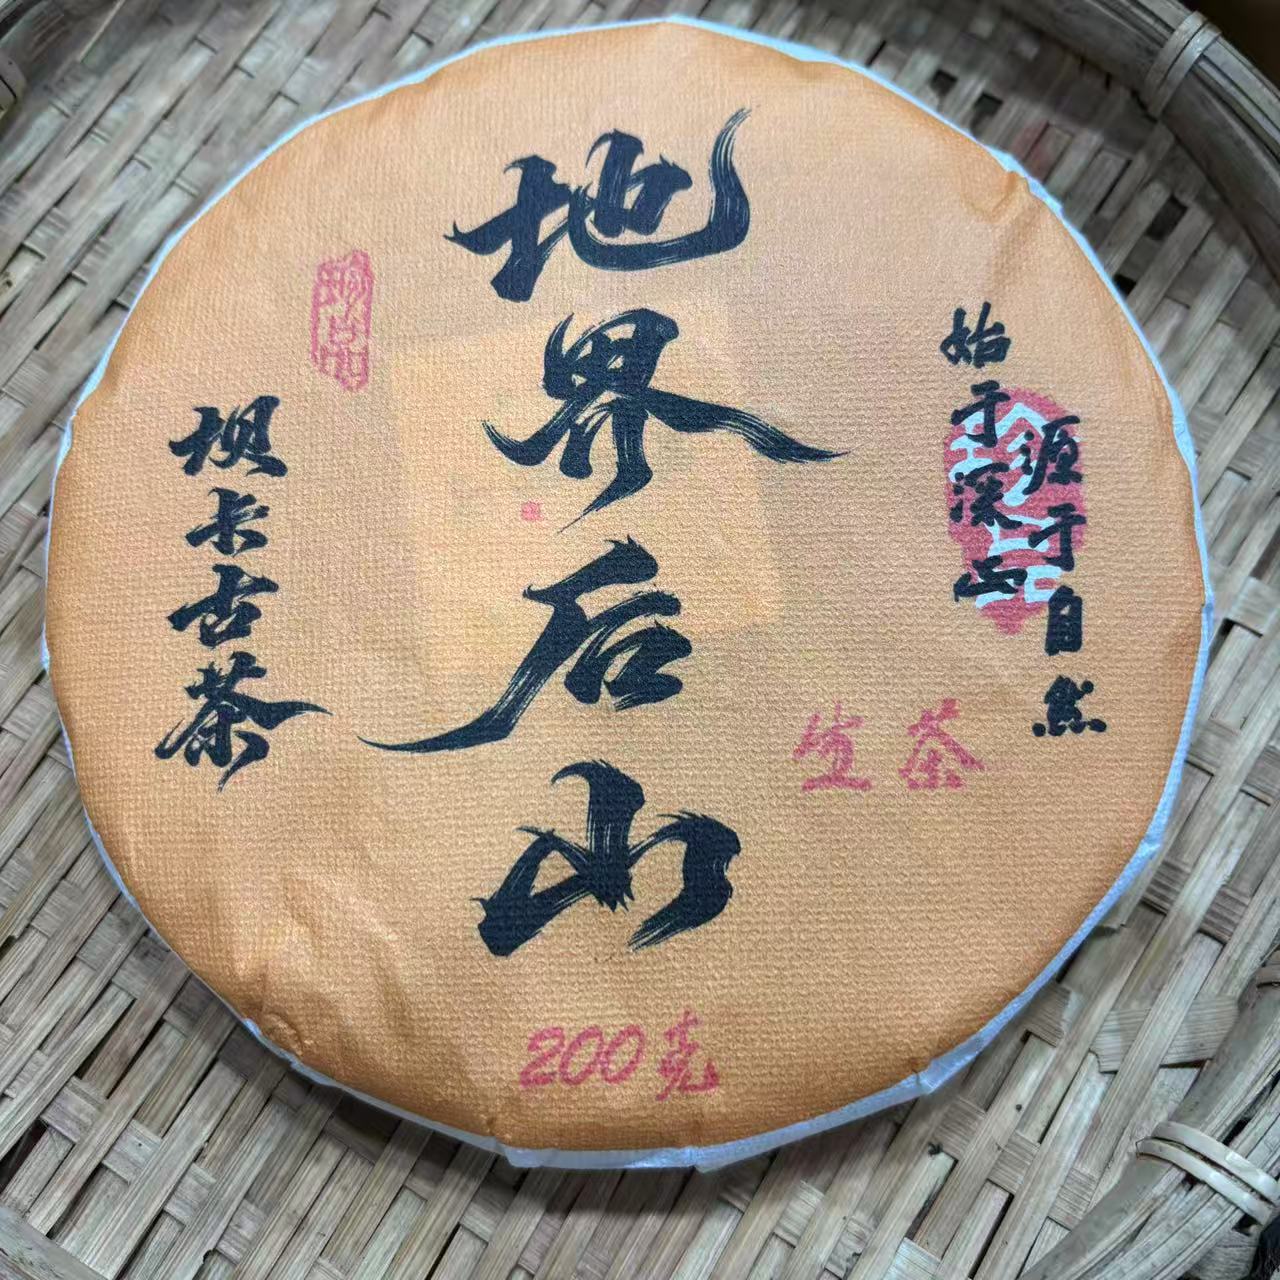 地界后山
源于自然
始于深山
珍品
坝卡古茶
生茶
200克